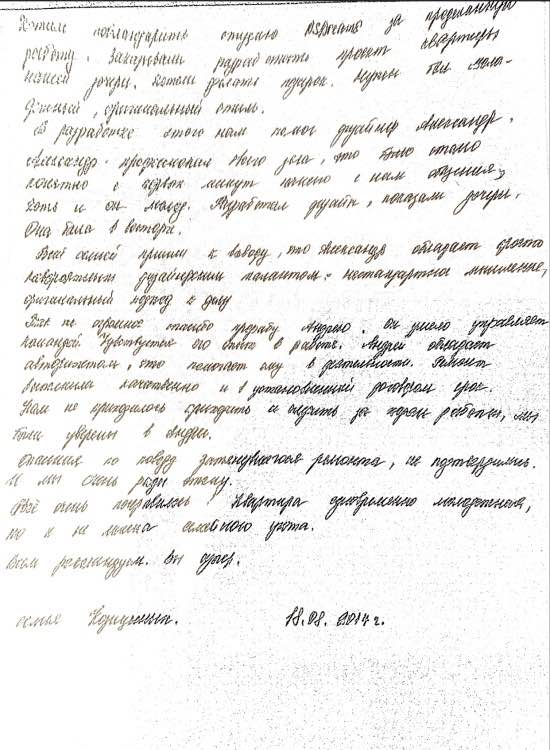 Хотим поблагодарить студию DsDreams за проделанную
работу. Заказывали разработать проект квартиры
нашей дочери. Хотели сделать подарок. Нужен был моло-
дежный, оригинальный стиль.
В разработке этого нам помог дизайнер Александр.
Александр - профессионал своего дела, это было стало
понятно с первых минут нашего с ним общения,
хоть и он молод. Разработали дизайн, показали дочери.
Она была в восторге.
Всей семьей пришли к выводу, что Александр обладает просто
невероятным дизайнерским талантом: нестандартное мышление,
оригинальный подход к делу
Так же огромное спасибо прорабу Андрею. Он умело управляет
командой. Чувствуется его опыт в работе. Андрей обладает
авторитетом, что помогает ему в деятельности. Ремонт
выполнили качественно и в установленный договором срок.
Нам не приходилось приходить и следить за ходом работы, мы
были уверены в Андрее.
Опасения по поводу затянувшегося ремонта, не подтвердились.
И мы очень рады этому.
Всё очень понравилось! Квартира одновременно молодежная,
но и не лишена семейного уюта.
Всем рекомендуем. Вы супер.
семья 18.08.2017 г.